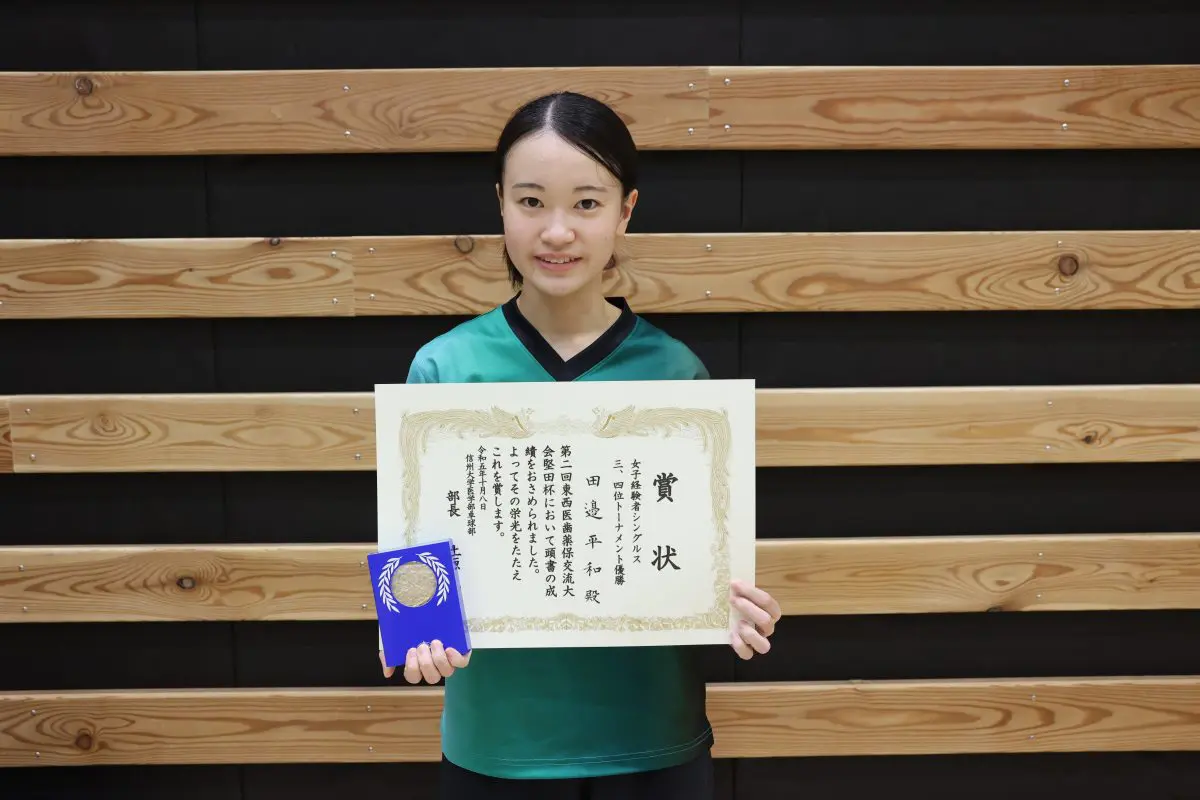 賞状
女子経験者シングルス
三、四位トーナメント優勝
田邉平和殿
第二回東西医歯薬保交流大
会堅田杯において頭書の成
績をおさめられました。
よってその栄光をたたえ
これを賞します。
令和五年十月八日
信州大学医学部卓球部
部長